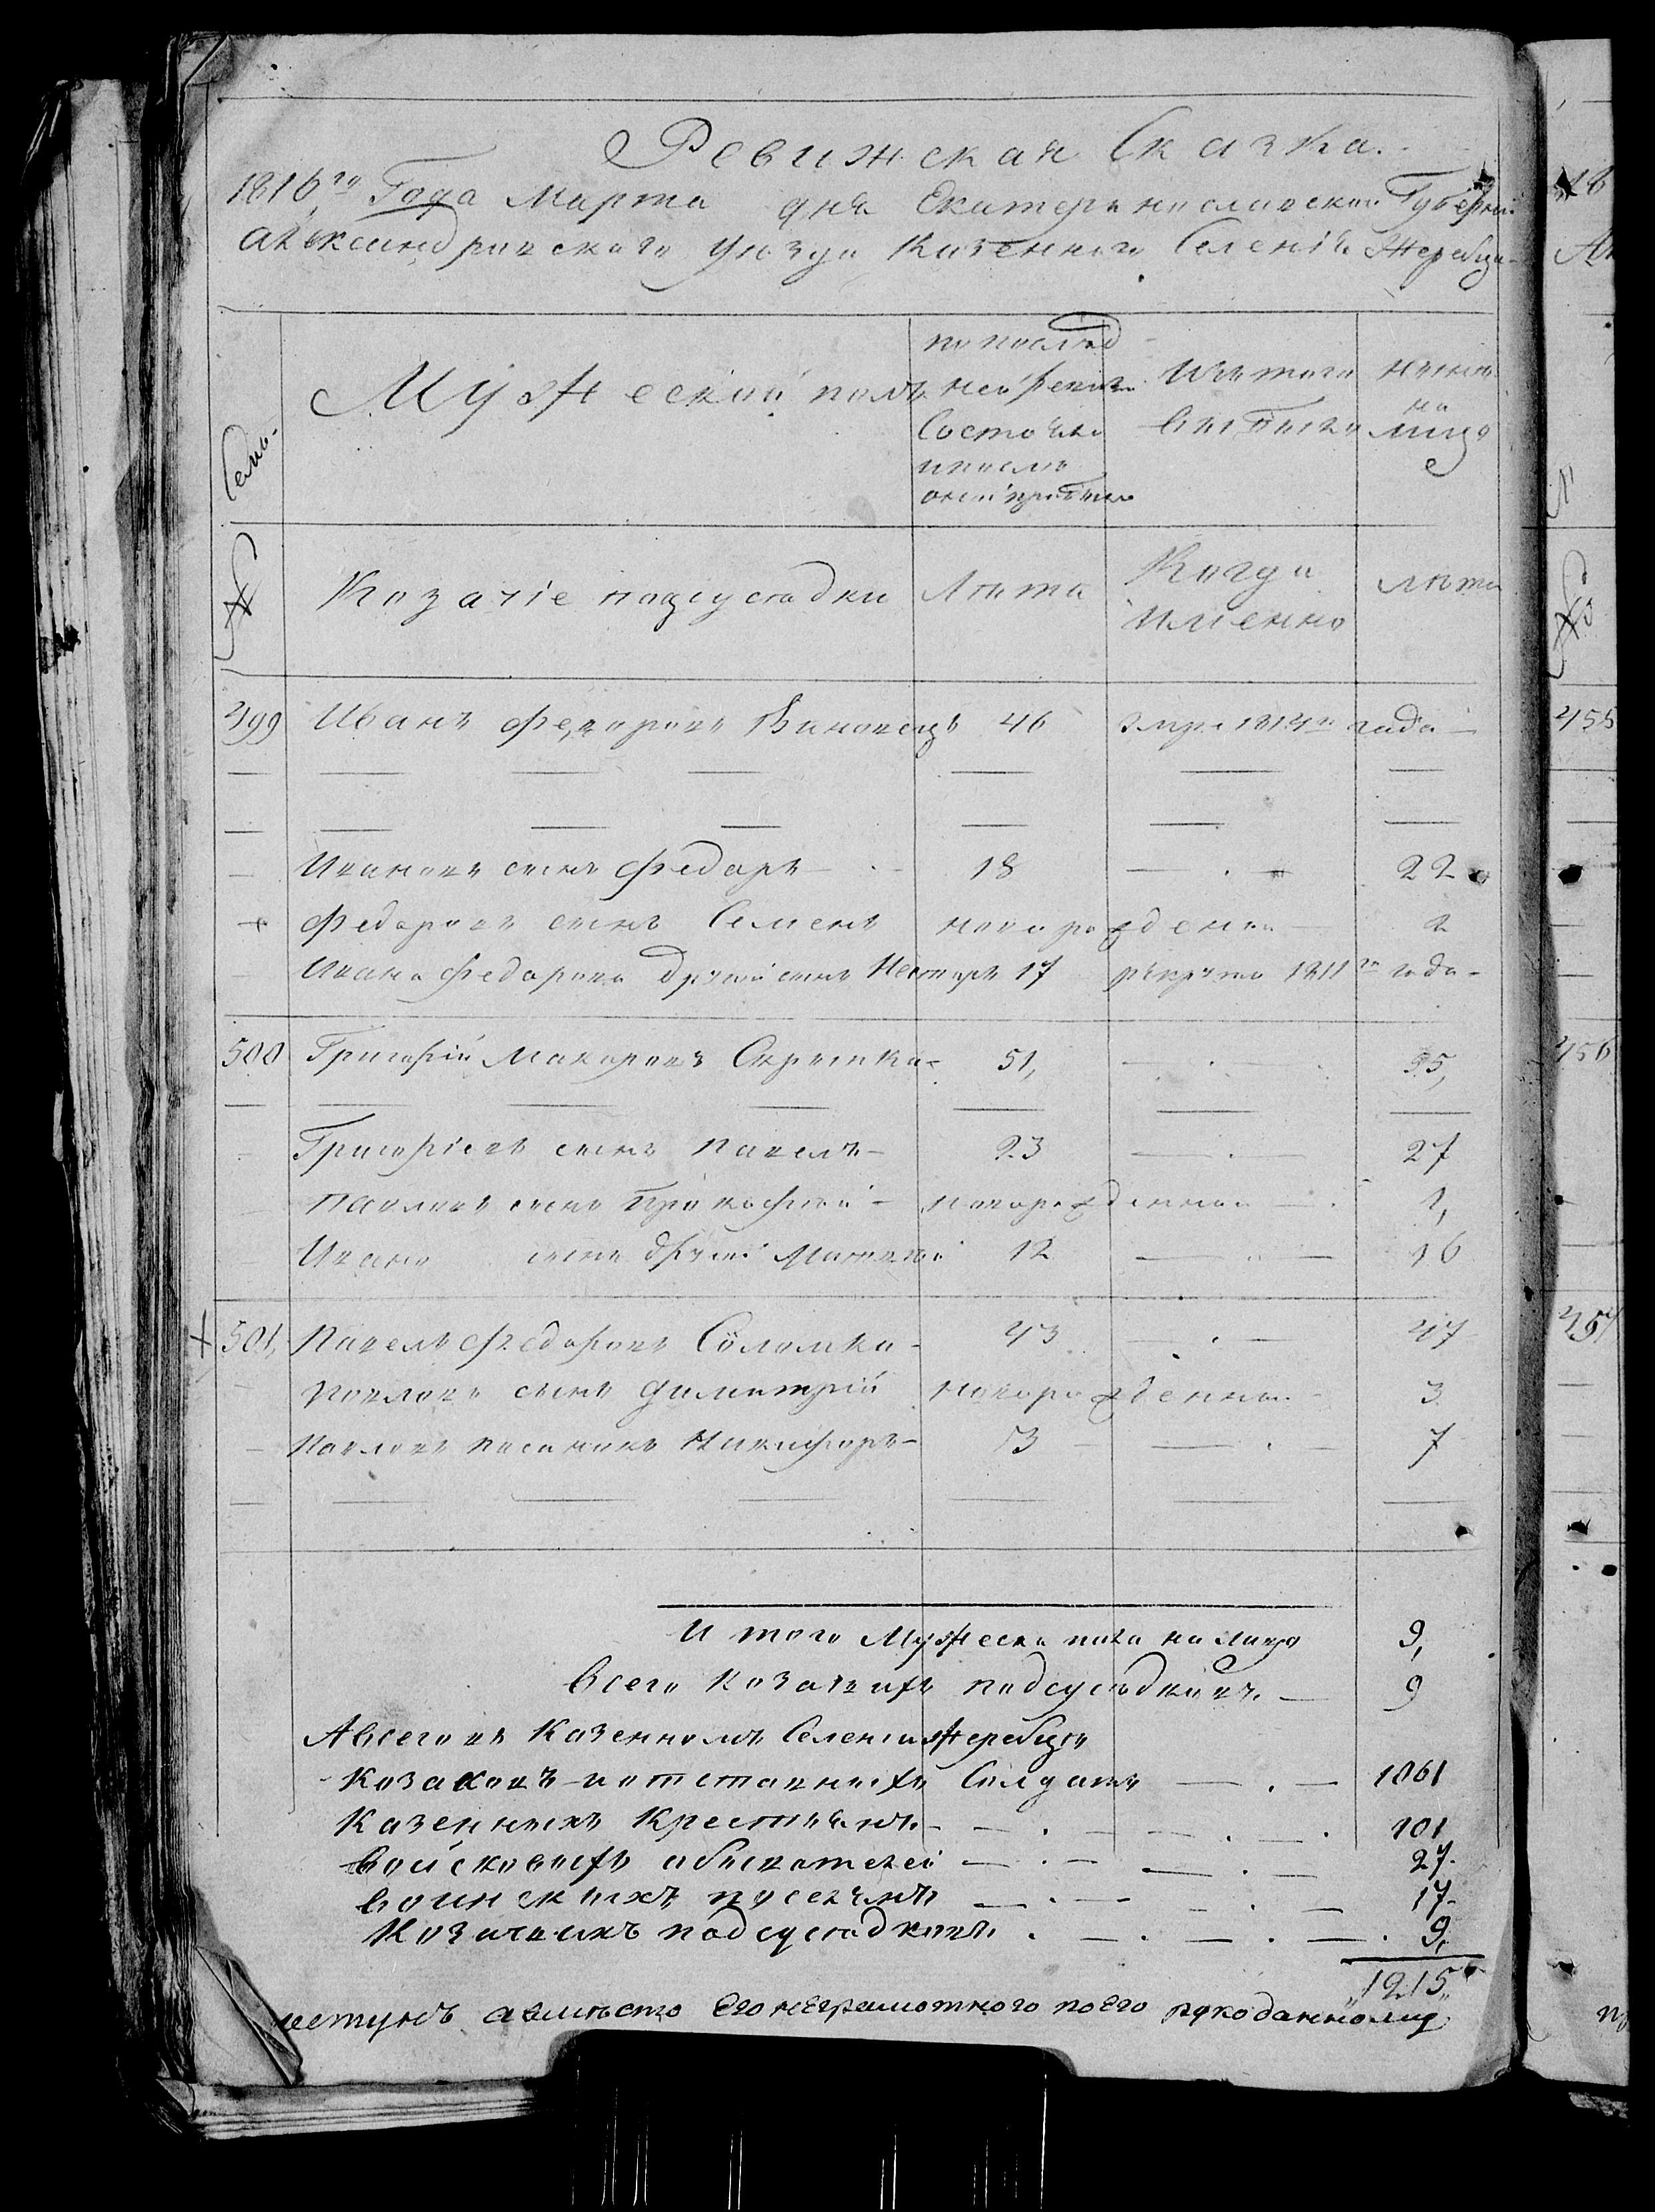 Ревижская Сказка.
1816го Года Марта дня Екатеринославской Губерніи
Александровского уезда Казенного Селенія Жеребца
Семьи
Мужескій полъ
по послед
ней ревизіи
Состояло
и после
оной прибыло
Изъ того
выбыло
ныне
на
лицо
№
Козачіе подсуседки
Лета
Когда
именно
лета
499 Иванъ Федоровъ Вановецъ 46 умре 1814го года
Ивановъ сынъ Федоръ 18 22
Федоровъ сынъ Семенъ новорожденой 2
Ивана Федорова другой сынъ Несторъ 17 рекрутъ 1811го года
500 Григорій Макаровъ Скрыпка 51, 55,
Григоріевъ сынъ Павелъ 23 27
Павловъ сынъ Прокофій новорожденной 1,
Ивана сынъ другой 12 16
501, Павелъ Федоровъ Соломка 43 47
Павловъ сынъ Димитрій новорожденной 3
Павловъ пасынокъ Никифоръ 3 7
Итого Мужеска пола на лицо 9,
Всего Козачихъ подсуседковъ. 9
А всего въ Казенномъ Селеніи Жеребце
Козаковъ и отставныхъ Солдатъ 1061
Казенныхъ Крестьянъ 101
Войсковыхъ обывателей 27
Воинскихъ поселянъ 17
Козачихъ подсуседковъ. 9,
1215
а вместо его неграмотного по его рукоданному
455
456
457